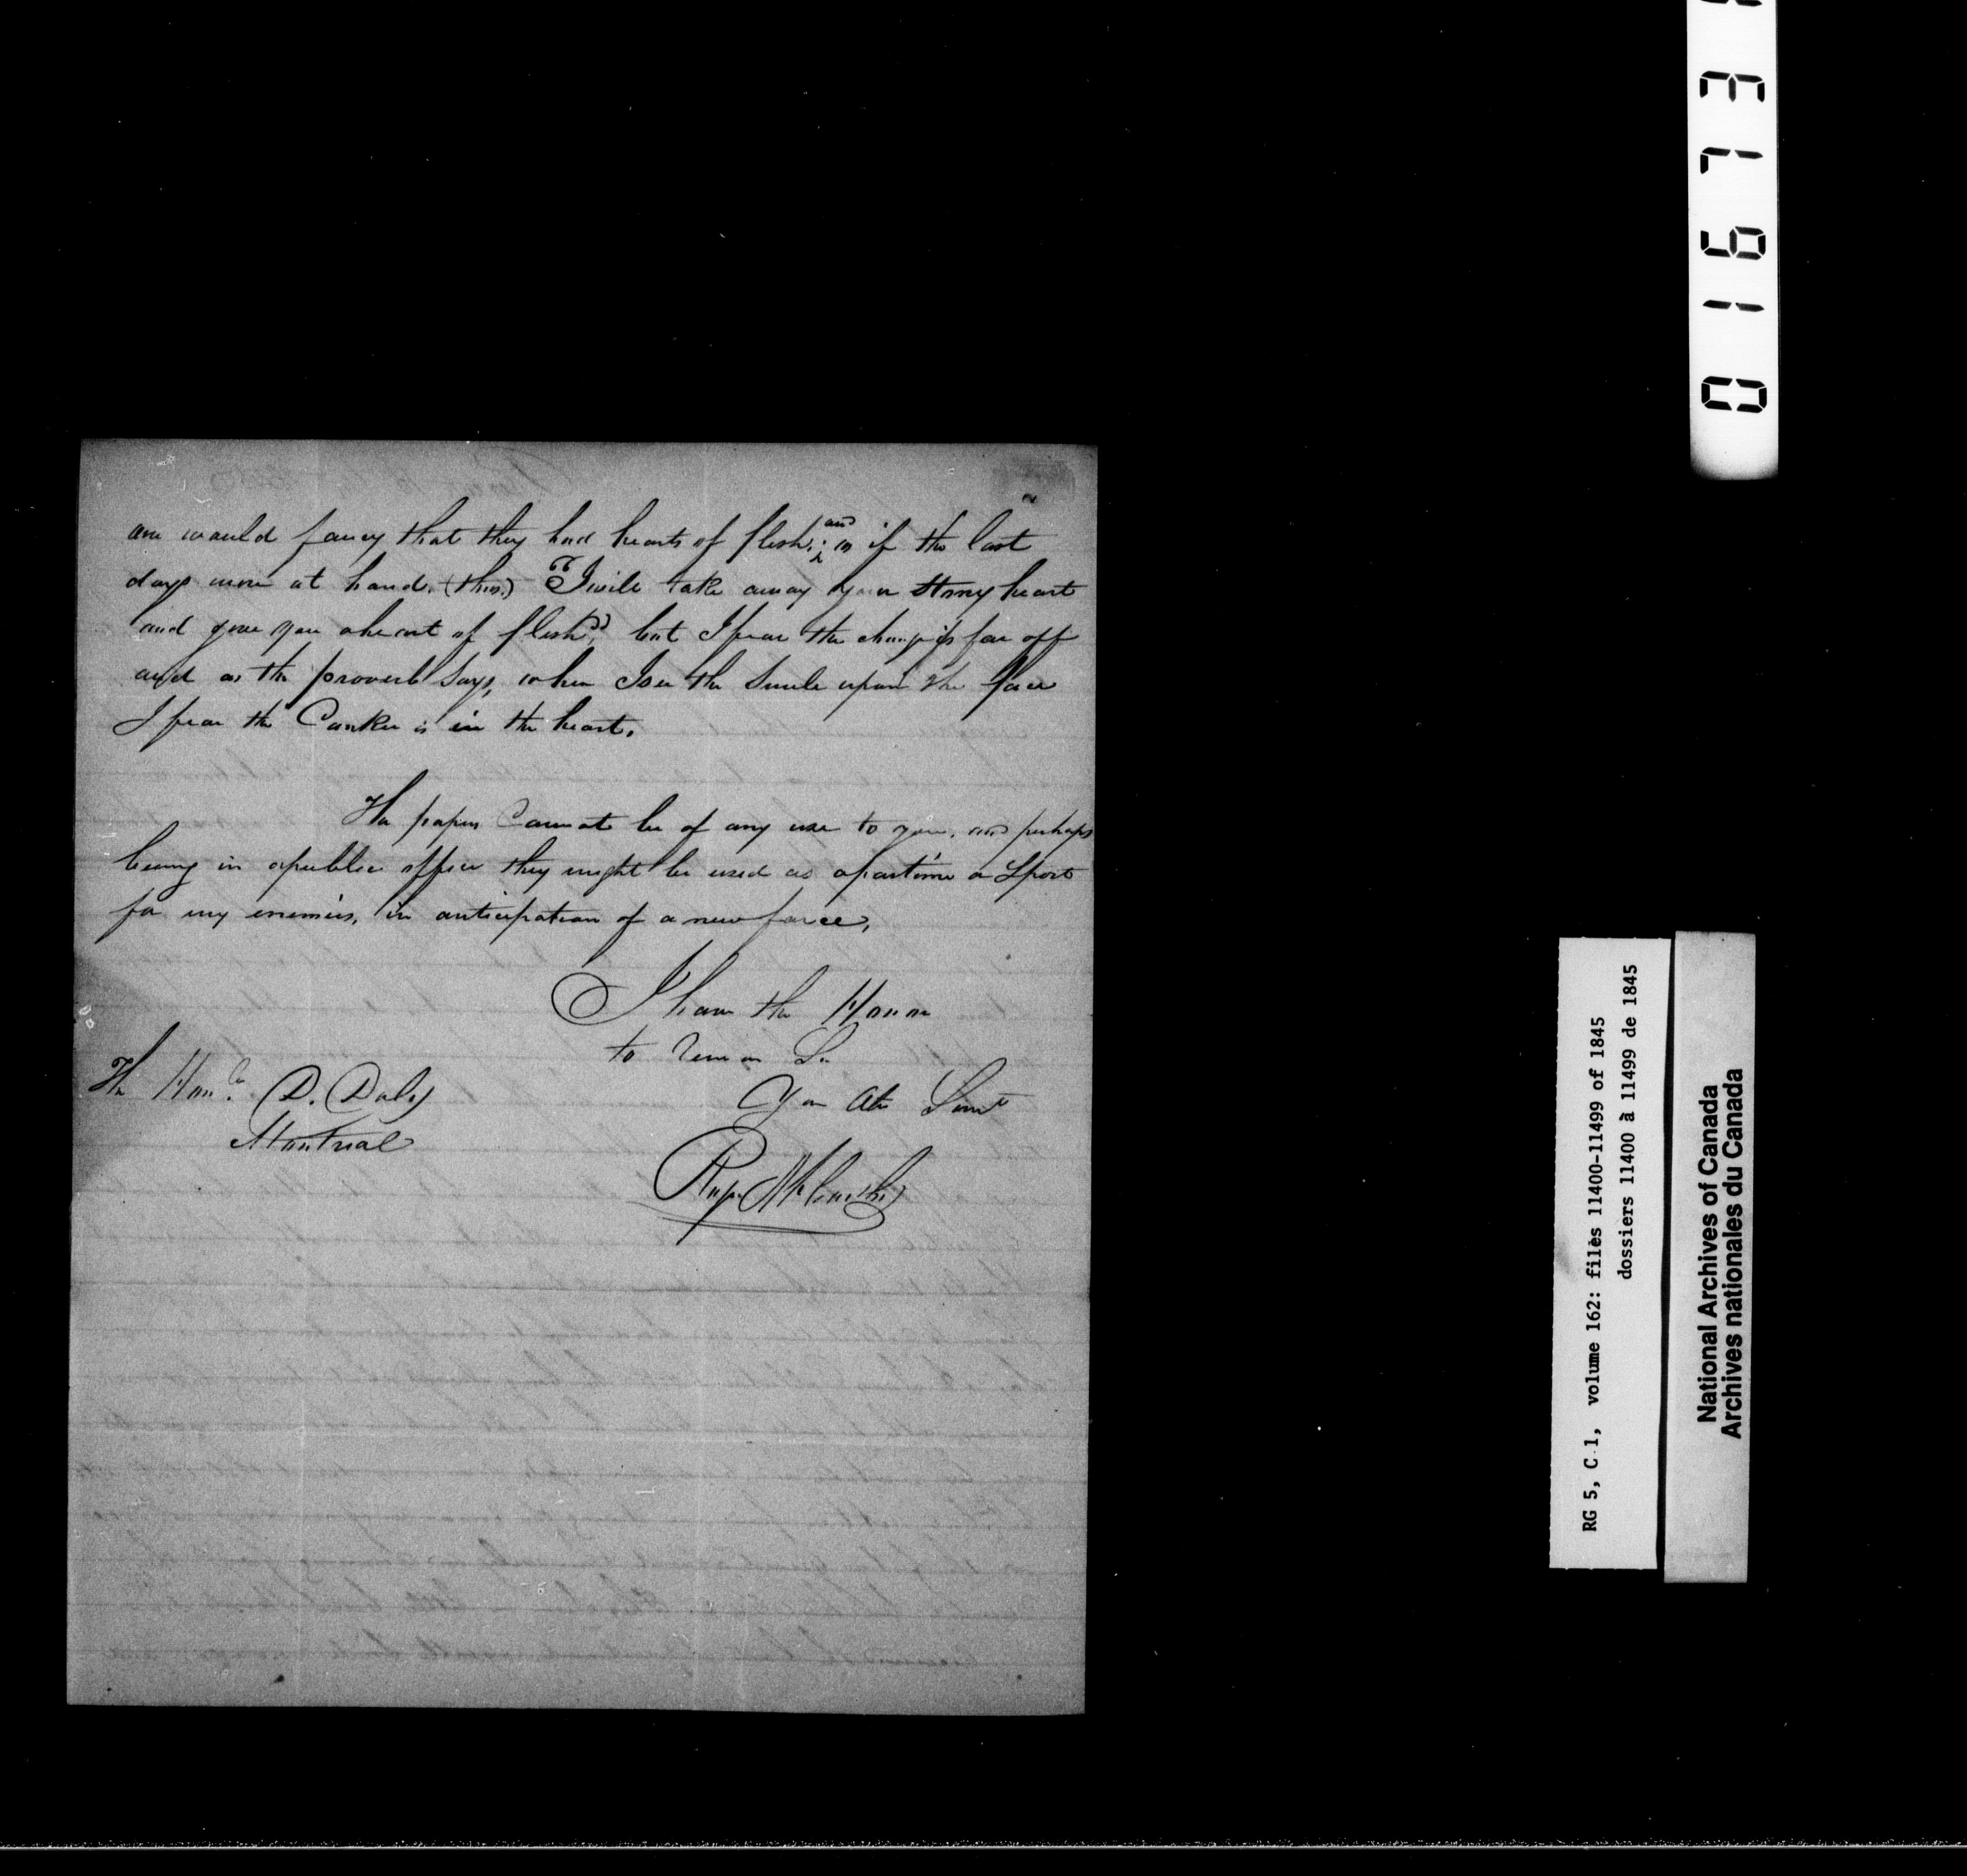 one would fancy that they had hearts of flesh; and as if the last
days were at hand. (thus.) "I will take away your stony heart
and give you a heart of flesh", but I fear the change is far off
and as the proverb says, when I see the smile upon the face
I fear the Canker is in the heart.
The papers Cannot be of any use to you, and perhaps
being in a public office they might be used as a pastime or Sport
for my enemies, in anticipation of a new farce,
I have the Honor
to remain Sir
The Honble D. Daly
Your Obt Servt
Montreal
0 1 6 1 7 3
RG 5, C 1, volume 162: files 11400-11499 of 1845
dossiers 11400 à 11499 de 1845
National Archives of Canada
Archives nationales du Canada